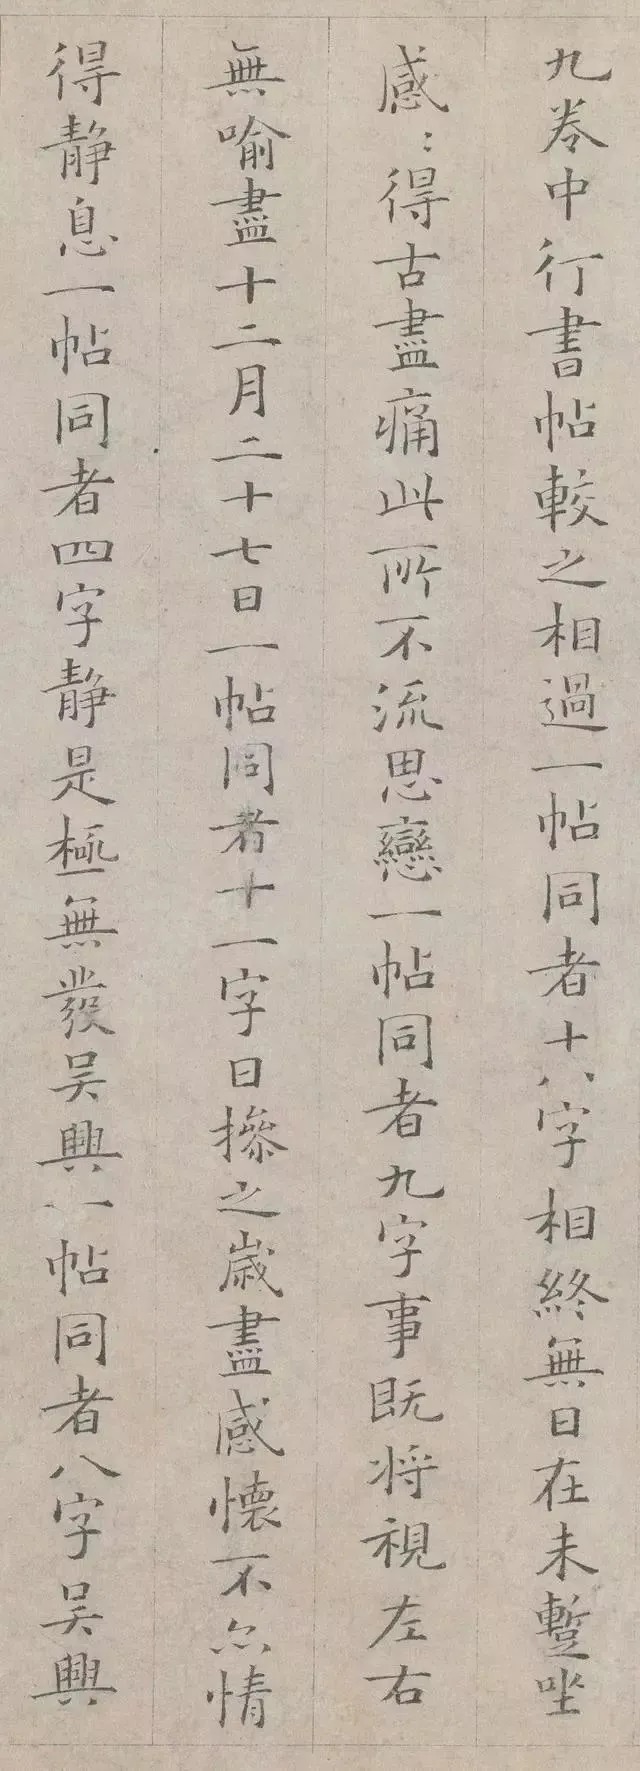 九卷中行書帖較之相過一帖同者十八字相終無日在未蹔坐
感〻得古盡痛此所不流思戀一帖同者九字事既将視左右
無喻盡十二月二十七日一帖同者十一字日摻之歳盡感懐不尒情
得静息一帖同者四字静是極無發吴興一帖同者八字吴興